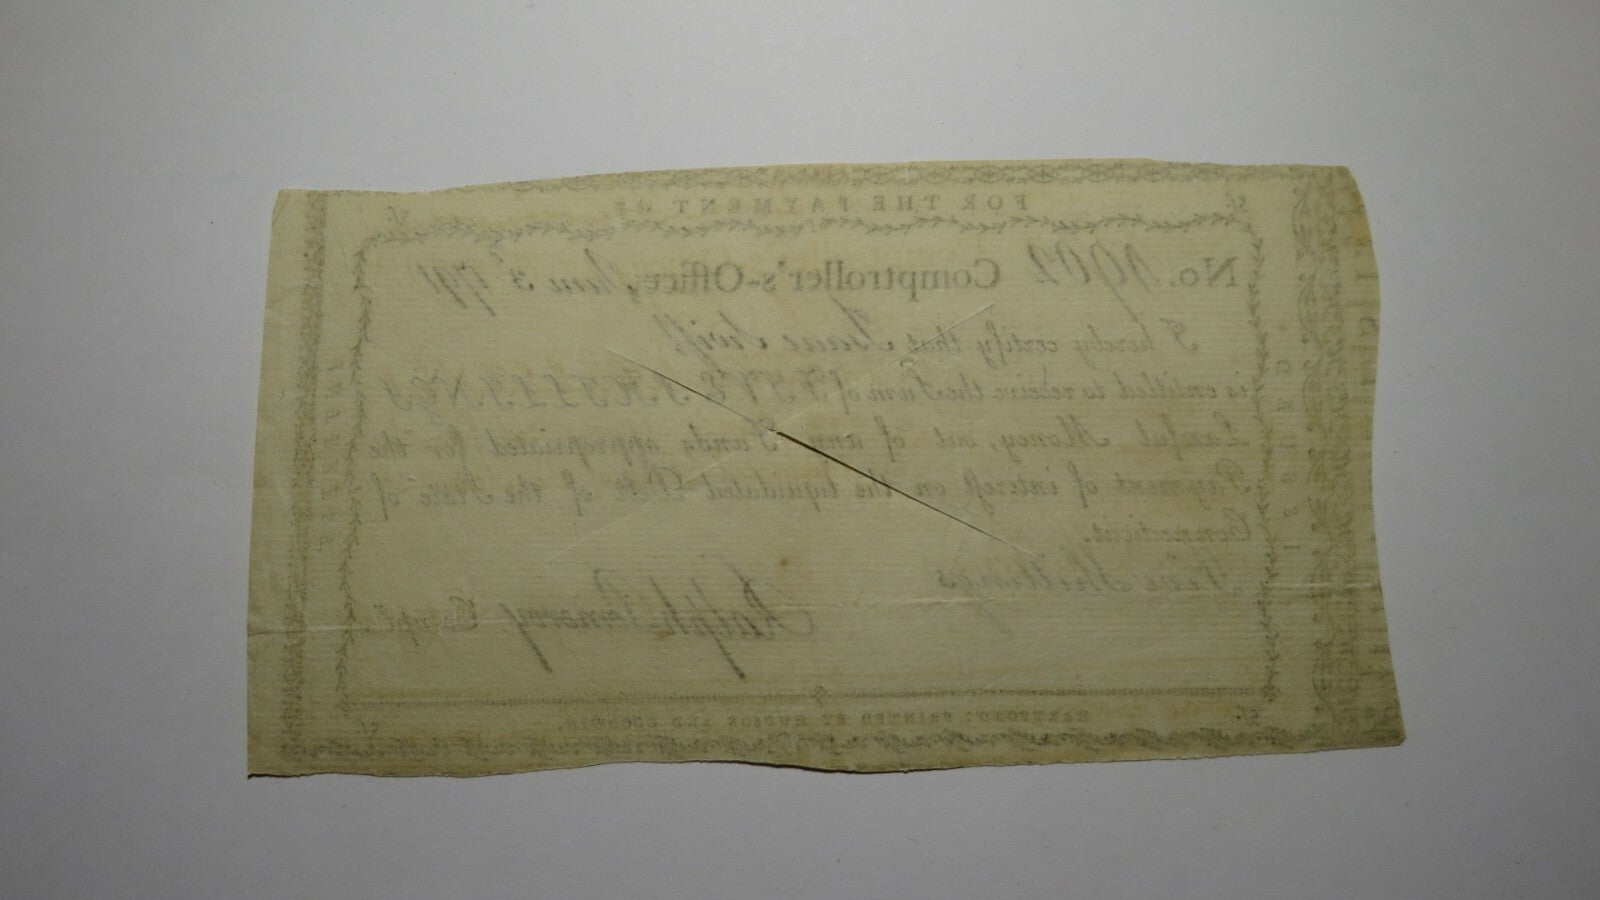 FOR THE PAYMENT OF
No. 1902 Comptroller's-Office, June 3 1791
I hereby certify that Swift
is entitled to receive the Sum of FIVE SHILLINGS
Lawful Money, out of any Funds appropriated for the
Payment of interest on the liquidated Debt of the State of
Connecticut.
Five Shillings
Ralph Pomeroy Compt
HARTFORD: PRINTED BY HUDSON AND GOODWIN.
INTEREST